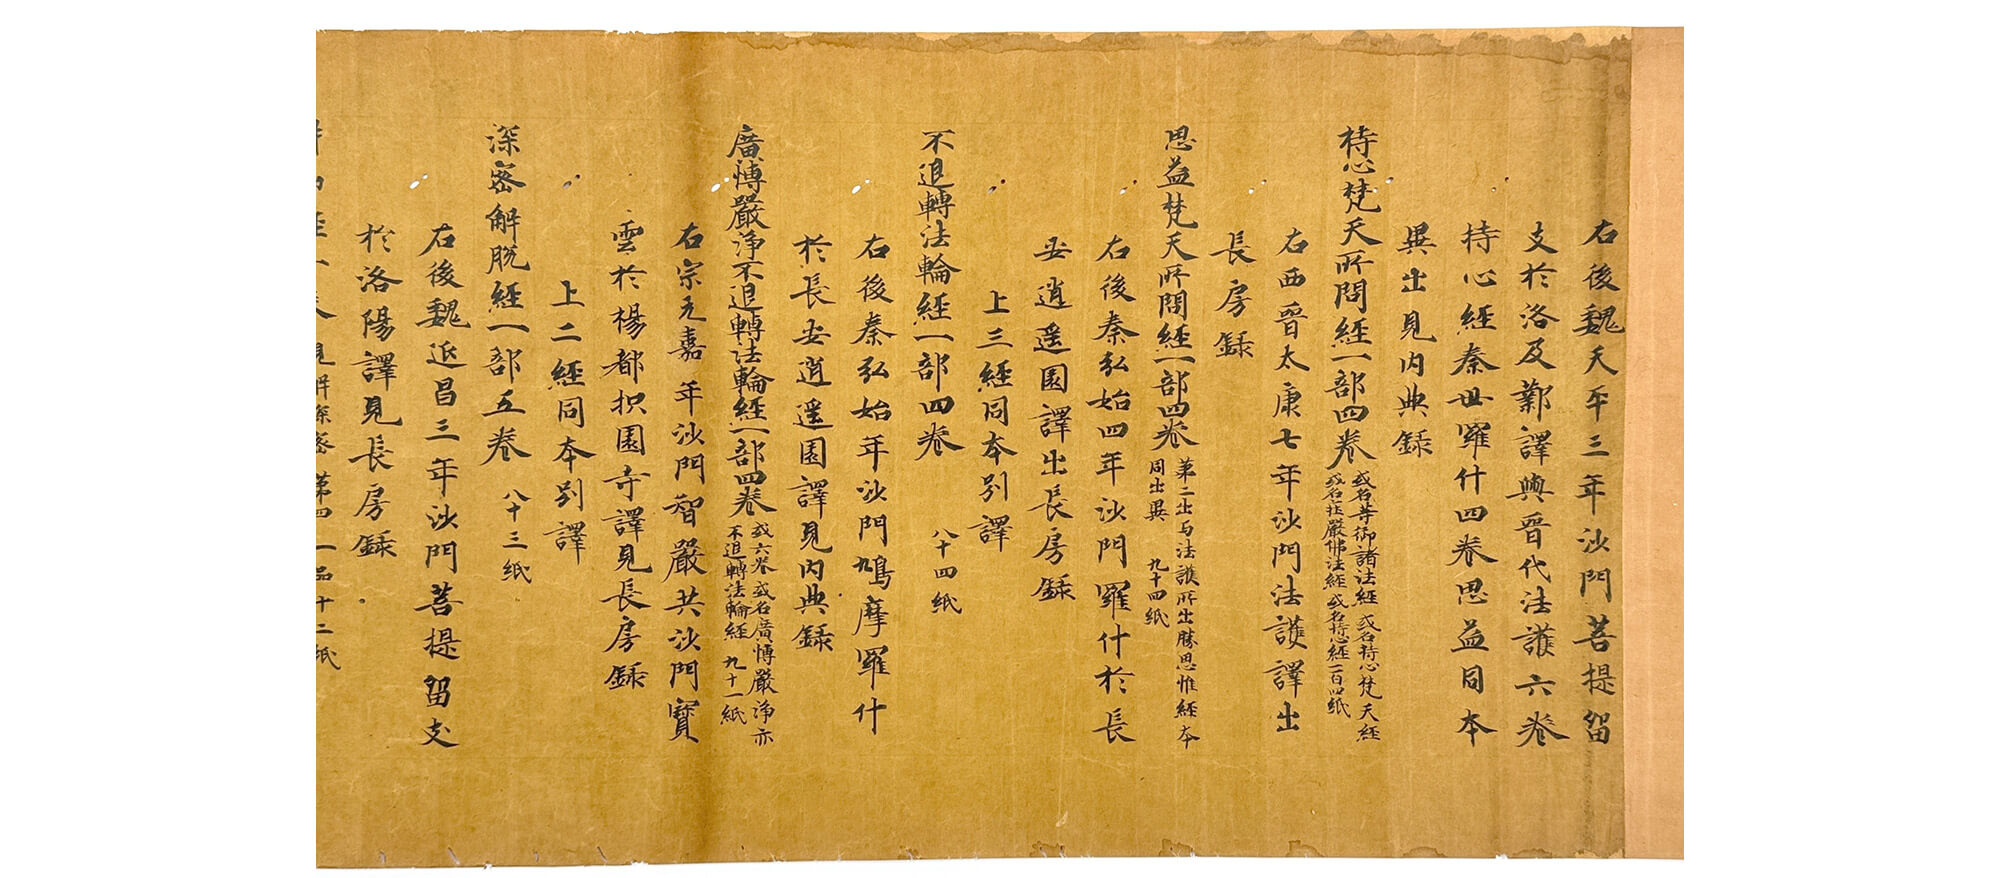 右後魏天平三年沙門菩提留
支於洛及鄴譯與晉代法護六卷
持心經秦世羅什四卷思益同本
異出見內典録
持心梵天所問經一部四卷 或名等御諸法經 或名持心梵天經
或名莊嚴佛法經 或名持心經 一百四紙
右西晉太康七年沙門法護譯出
長房録
思益梵天所問經一部四卷 第二出与法護所出勝思惟經本
同出異 九十四紙
右後秦弘始四年沙門羅什於長
安逍遥園譯出長房録
上三經同本別譯
不退轉法輪經一部四卷 八十四紙
右後秦弘始年沙門鳩摩羅什
於長安逍遥園譯見內典録
廣博嚴淨不退轉法輪經一部四卷 或六卷 或名廣博嚴淨亦
不退轉法輪經 九十一紙
右宗元嘉年沙門智嚴共沙門寶
雲於楊都枳園寺譯見長房録
上二經同本別譯
深密解脫經一部五卷 八十三紙
右後魏延昌三年沙門菩提留支
於洛陽譯見長房録